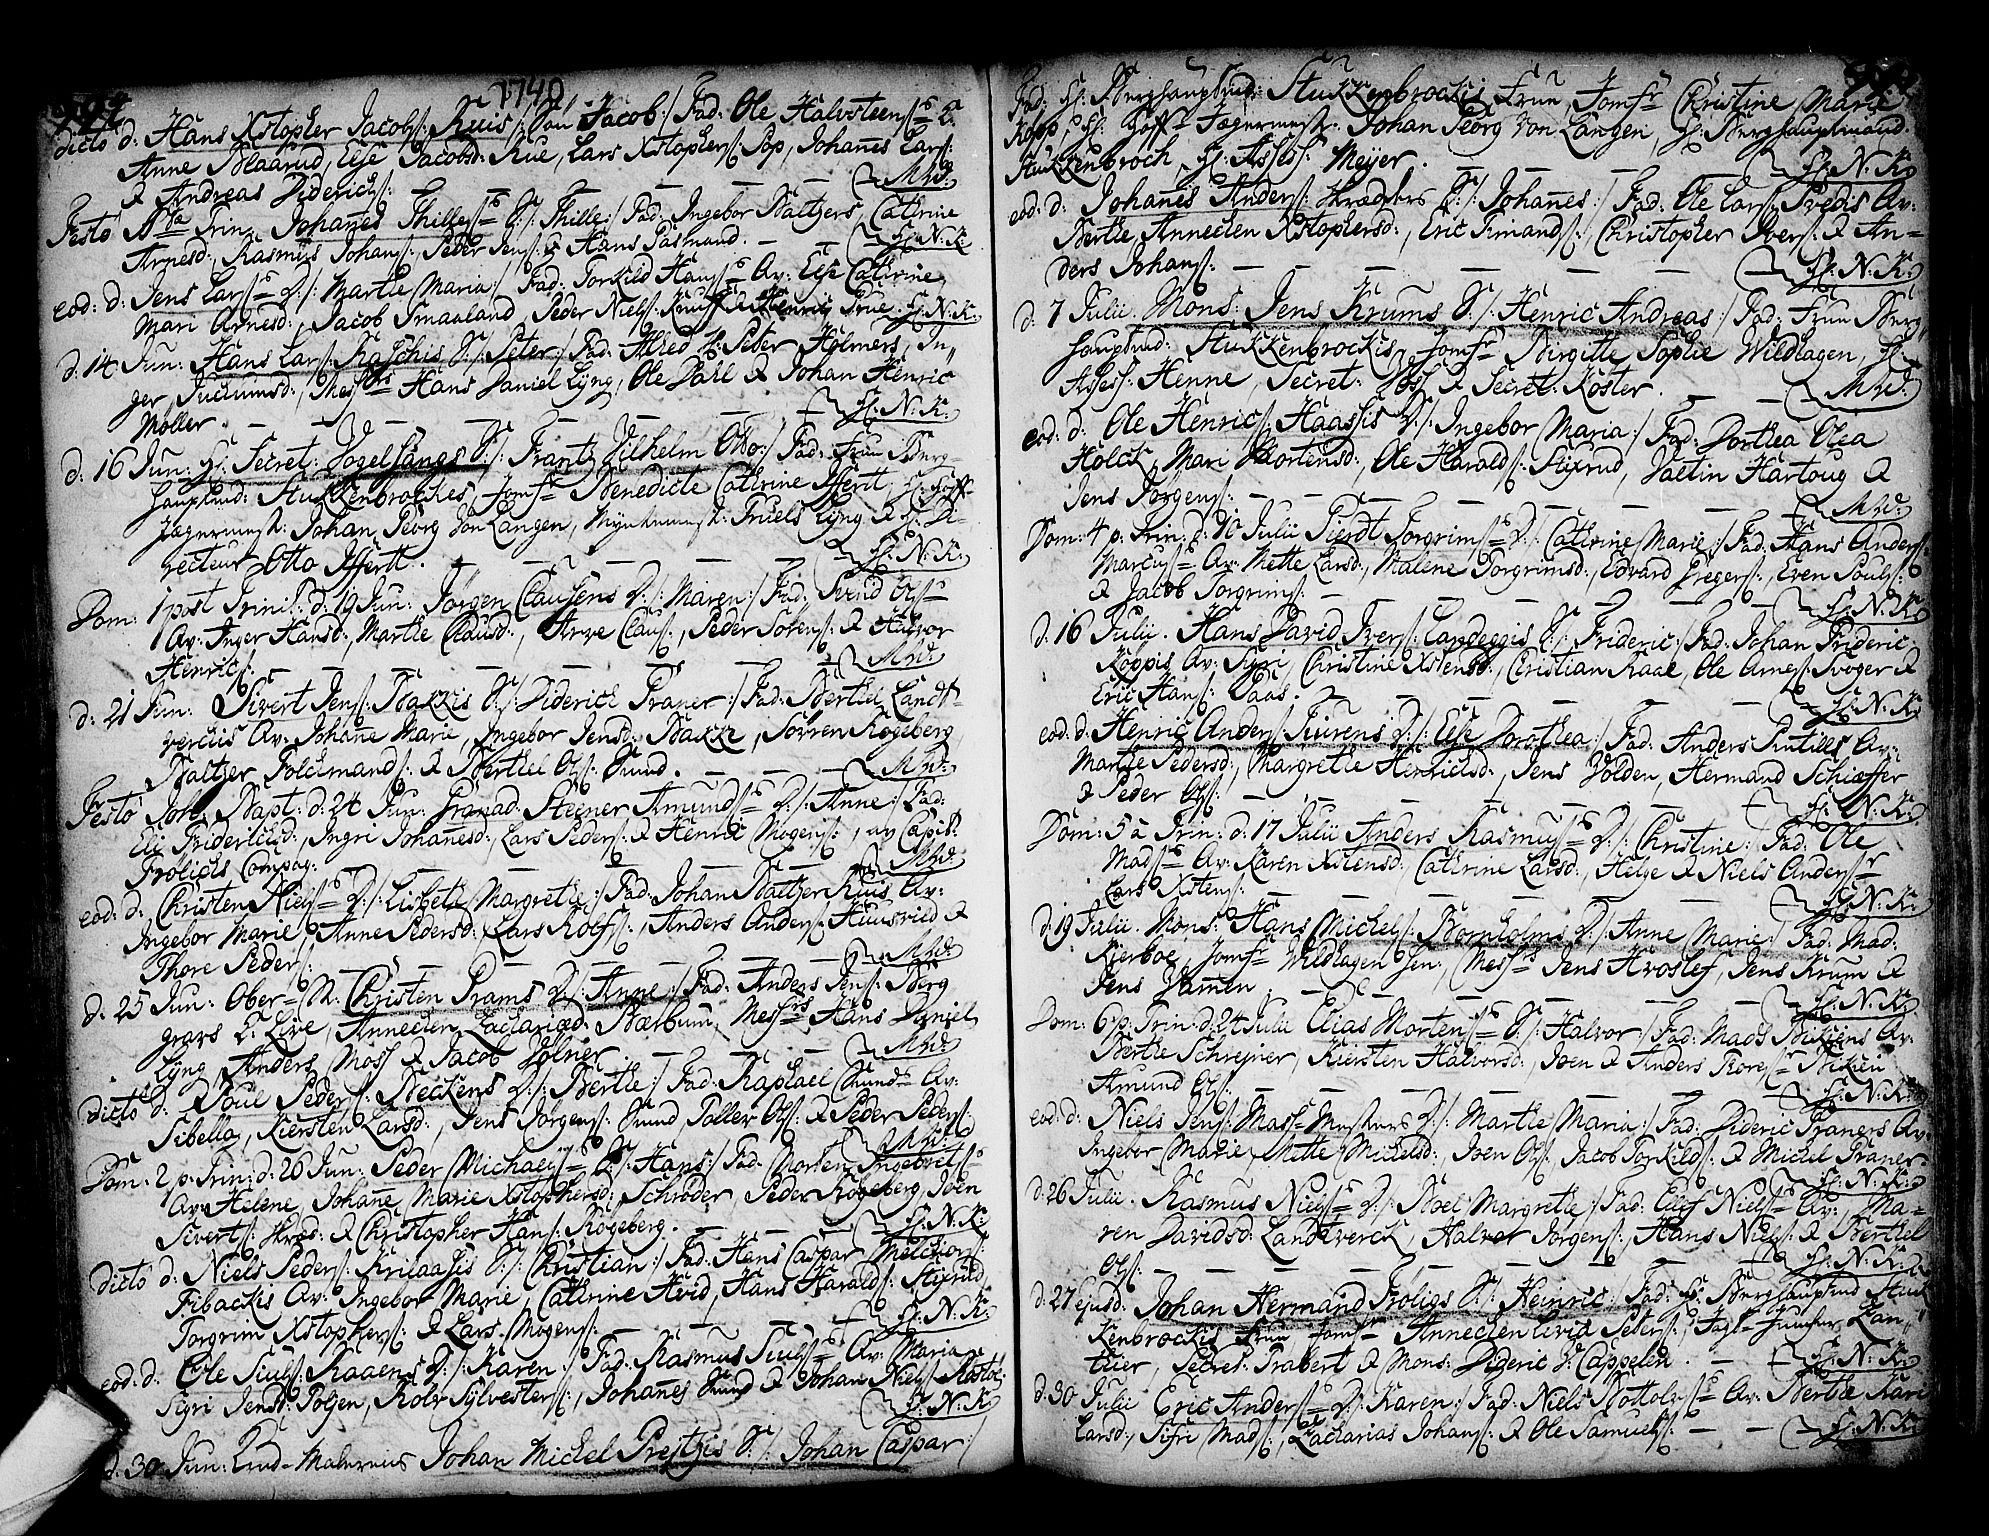 1740
dicto d: Hans Xstopher Jacobs: Ruis Søn Jacob /: Fad: Ole Halvsteens: Q:
Anne Blaarud, Else Jacobsd: Rue, Lars Xstophers: Pop, Johannes Lars:
& Andreas Diderichs:
Festo Trin: Johannes Thilles: S: /: Thille /: Fad: Ingebor Baltzers, Cathrine
Arnesd:, Rasmus Johans:, Peder Jens: & Hans Pasmand. H: N: K:
eod: d: Jens Lars: D: /: Marthe Maria /: Fad: Torkild Hans: Qv: Else Cathrine,
Mari Arnesd:, Jacob Smaaland, Peder Niels: Knuf & Henric Prue. H: N: K:
d: 14 Jun: Hans Lars: Raschis S: /: Peter /: Fad: Peter Holmers, In-
ger Juliumsd:, Messrs Hans Daniel Lyng, Ole Dahl & Johan Henric
Møller. H: N: K:
d: 16 Jun: H: Secret: Vogelsangs S: /: Frantz Vilhelm Otto /: Fad: Frue Berg-
hauptmd: Stukkenbrockes, Jomfr Benedicte Cathrine Iffert, H: Hoff-
Jægermest: Johan Georg von Langen, Myntemest: Truels Lyng & H: Di-
recteur Otto Iffert. H: N: K:
Dom: 1 post Trinit: d: 19 Jun: Jørgen Clausens D: /: Maren /: Fad: Svend Ols:
Qv: Inger Hansd:, Marthe Clausd:, Arve Claus:, Peder Sørens: & Halvor
Henrics:
d: 21 Jun: Sivert Jens: Bakkis S: /: Diderich Praner /: Fad: Berthel Landt-
vercus Qv: Johanne Marie, Ingebor Jensd: Bakk, Sørren Kogeberg,
Baltzer Folckmands: & Berthel Ols: Sund.
Festo Joh: Bapt: d: 24 Jun: Granad: Steener Amunds: D: /: Anne /: Fad:
Eli Friderichsd:, Ingri Johannesd:, Lars Peders: & Henric Mogens:, av Capit:
Frølichs Compag:
eod: d: Christen Niels: D: /: Lisbeth Margrethe /: Fad: Johan Baltzer Ruis Qv:
Ingebor Marie, Anne Pedersd:, Lars Rolfs:, Anders Anders: Huusvild &
Thore Peders:
d: 25 Jun: Ober-St: Christen Prams D: /: Anne /: Fad: Anders Jens: Berg
Live, Annechen Zachariæd: Bærbum, Messrs Hans Daniel
Lyng, Anders Moss & Jacob Volner
dicto d: Poul Peders: Beckens D: /: Berthe /: Fad: Raphael Sunds Qv:
Sibella, Kiersten Larsd:, Jens Jørgens: Sund Poller Ols: & Peder Peders:
Dom: 2 p: Trin: d: 26 Jun: Peder Michaels: S: /: Hans /: Fad: Morten Ingebrets:
Qv: Helene, Johanne Marie Xstophersd: Schrøder, Peder Kogeberg, Iven
Siverts: skræd: & Christopher Hans: Kogeberg. H: N: K:
dicto d: Niels Peders: Krilaasis S: /: Christian /: Fad: Hans Caspar Melchior:
Fibackis Qv: Ingebor Marie, Cathrine Hvid, Hans Haralds: Stixrud,
Torgrim Xstophers: & Lars Mogens: H: N: K:
eod: d: Ole Juls: Raaens D: /: Karen /: Fad: Rasmus Juls: Qv: Maria
Siri Jensd: Polsen, Rolv Sylvesters:, Johannes Sund & Johan Niels: H: N: K:
d: 30 Jun: Johan Michel Preitzis S: /: Johan Caspar /:
Fad: H: Berghauptmd: Stukkenbrockis Frue, Jomfr Christine Marie
Kopp, H: Hoff- Jægermest: Johan Georg von Langen, H: Berghauptmand
Stukkenbroch, H: Assess: Meyer. H: N: K:
eod: d: Johannes Anders: Skræders S: /: Johannes /: Fad: Ole Lars: Qv:
Berthe, Annechen Xstophersd:, Eric Simands:, Christopher Ivers: & An-
ders Johans: H: N: K:
d: 7 Julii Mons: Jens Krums S: /: Henric Andreas /: Fad: Frue Berg-
hauptmd: Stukkenbrockis, Jomfr Birgitte Sophie Wildhagen, H:
Assess: Henne, Secret: & Secret: Koster.
eod: d: Ole Henrics: Haassis D: /: Ingebor Maria /: Fad: Dorthea Olea
Holck, Mari Mortensd:, Ole Haralds: Stixrud, Valtin Hartoug &
Jens Jørgens:
Dom: 4 p: Trin: d: 10 Julii Siert Torgrims: D: /: Cathrine Marie /: Fad: Hans Anders:
Marcus: Qv: Mette Larsd:, Malene Torgrimsd:, Edvard Gregers:, Even Pouls:
& Jacob Torgrims: H: N: K:
d: 16 Julii. Hans David Ivers: Landeggis S: /: Frideric /: Fad: Johan Frideric
Koppis Qv: Siri, Christine Xstensd:, Christian Raae, Ole Arnes: Svoger &
Eric Hans: Aaas. H: N: K:
eod: d: Henric Anders: Tiurens D: /: Else Dorothea /: Fad: Anders Pintills Qv:
Marthe Pedersd:, Margrethe Henrichsd:, Jens Volden, Hermand Schæffer
& Peder Ols: H: N: K:
Dom: 5 à Trin: d: 17 Julii Anders Rasmus: D: /: Christine /: Fad: Ole
Mads: Qv: Karen Xstensd:, Cathrine Larsd:, Helge & Niels Anders:
Lars Xstens: H: N: K:
d: 19 Julii. Mons: Hans Michels: Bornholms D: /: Anne Marie /: Fad: Mad:
Kierboe, Jomfr Wildhagen sen:, Messrs Jens Hvoslef, Jens Krum &
Jens Vamen. H: N: K:
Dom: 6 p: Trin: d: 24 Julii Elias Mortens: S: /: Halvor /: Fad: Mads Bikiens Qv:
Berthe Schreiner, Kiersten Halvorsd:, Iven & Anders Tores: Brikien
Amund Ols: H: N: K:
eod: d: Niels Jens: Mass-Mesters D: /: Marthe Maria /: Fad: Dideric Praners Qv:
Ingebor Marie, Mette Michelsd:, Iven Ols:, Jacob Torkilds: & Michel Praner.
d: 26 Julii. Rasmus Niels: D: /: Boel Margrethe /: Fad: Elef Niels: Qv: Ma-
ren Davidsd: Landtverck, Halvor Jørgens:, Hans Niels: & Berthel
Ols: H: N: K:
d: 27 ejusd: Johan Hermand Froligs S: /: Heinric: Fad: H: Berghauptmd Stuk-
kenbrockis Frue, Jomfr Annechen Livia Peters:, Jagt-Junker Lan-
thier, Secret: Trabert & Mons: Dideric d: Cappelen. H: N: K:
d: 30 Julii Eric Anders: D: /: Karen /: Fad: Niels Bottolvs: Qv: Berthe Kari
Larsd:, Siri Mads:, Zacharias Johans: & Ole Samuels: H: N: K: